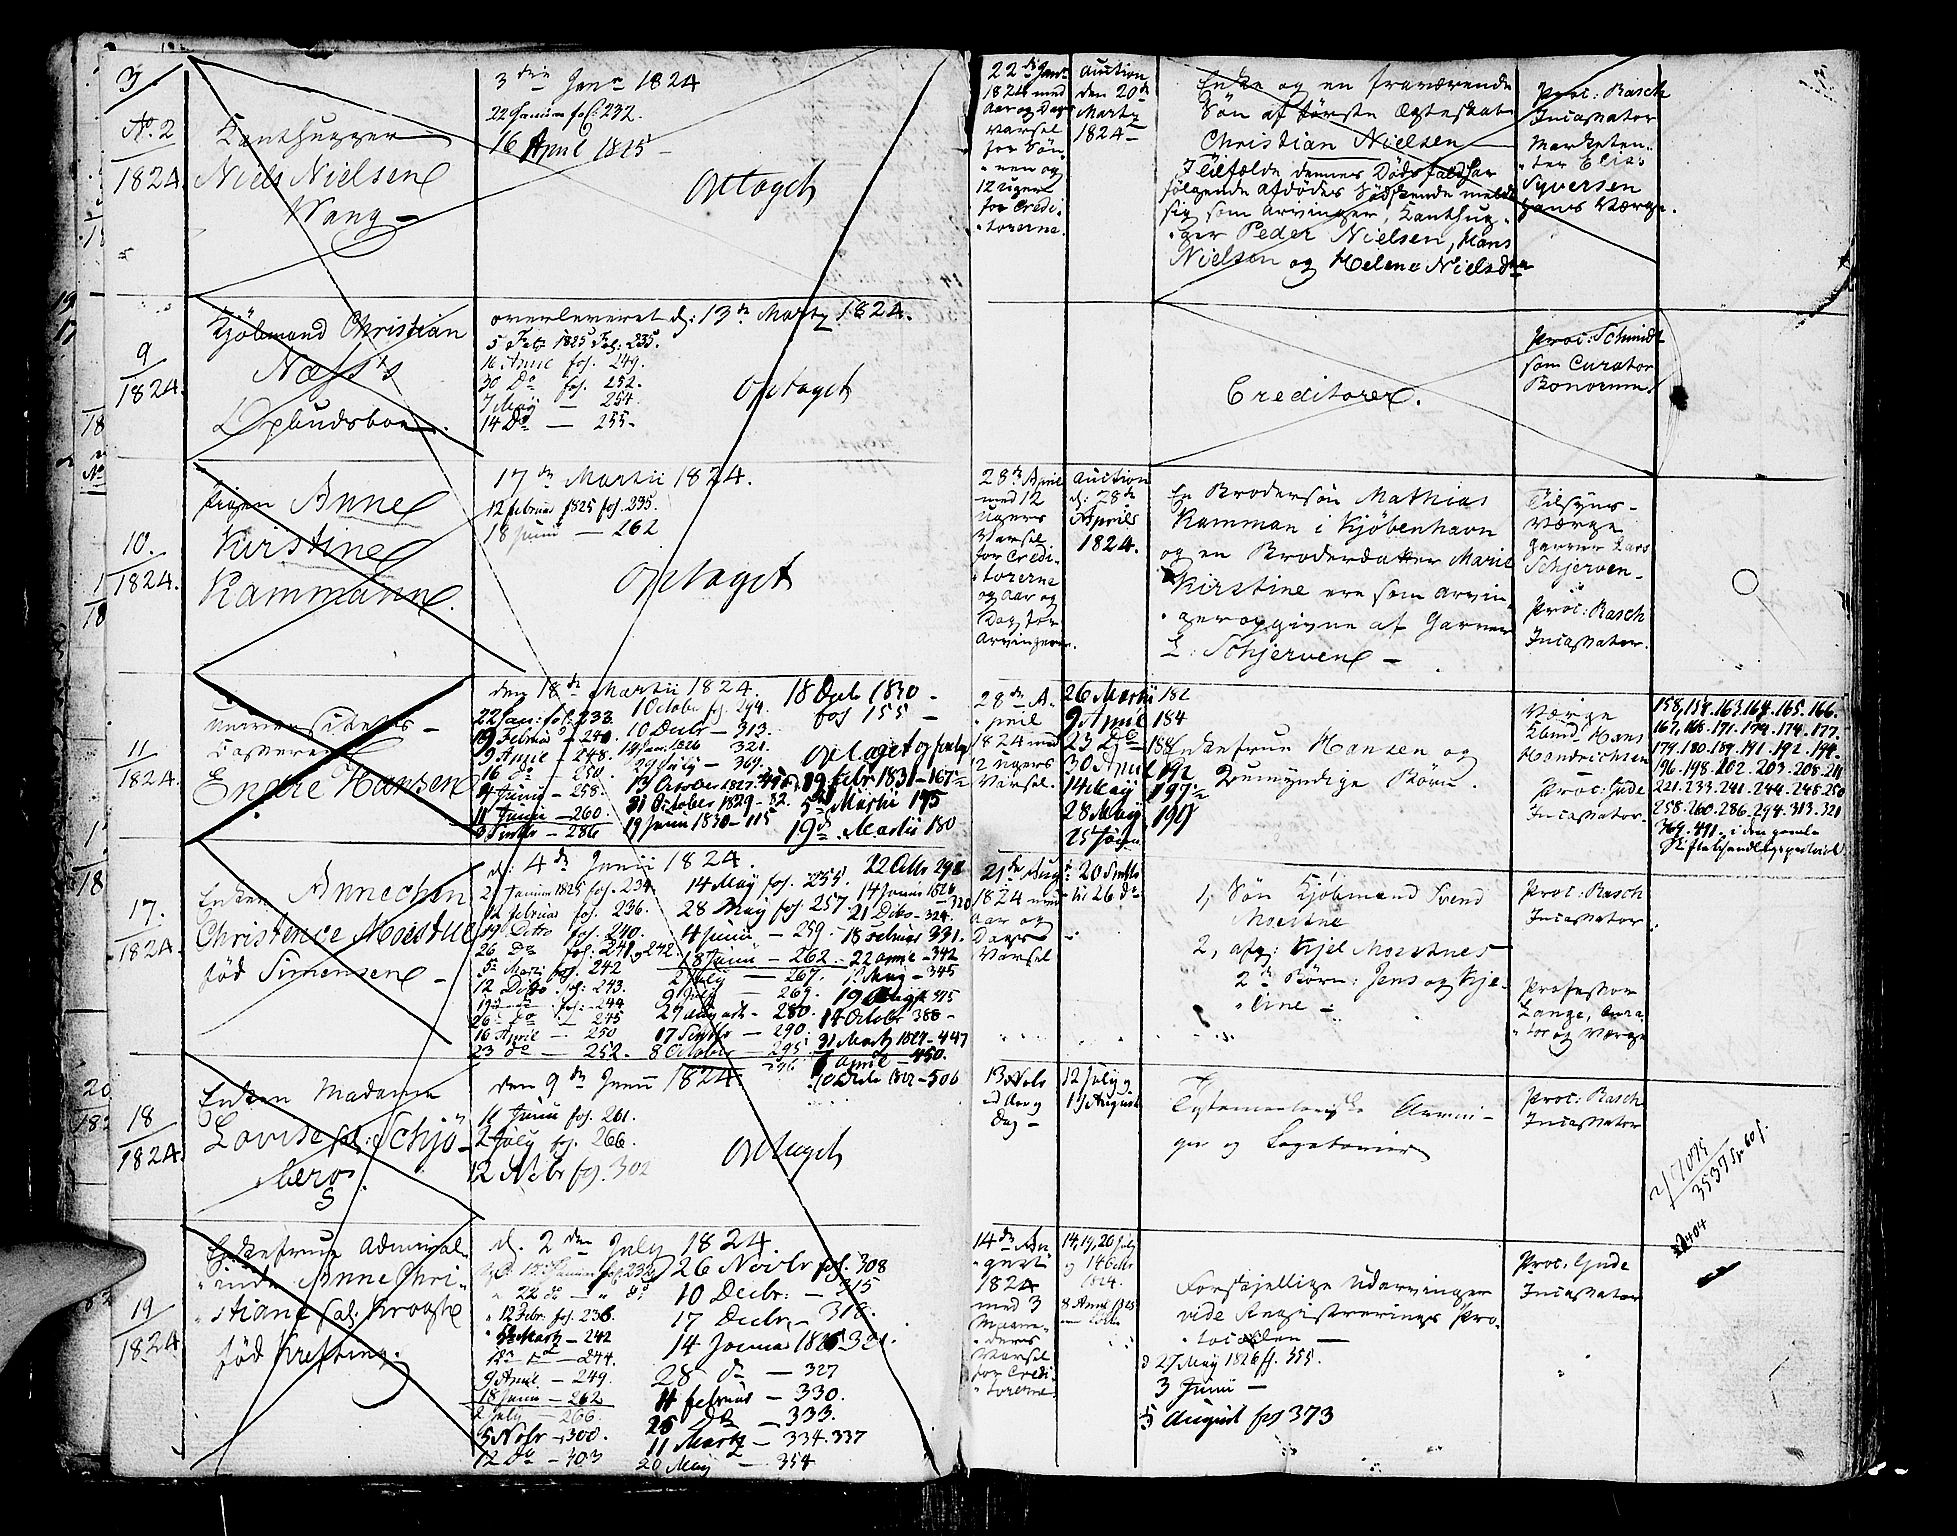 3
No. 2
1824.
Kanthugger
Niels Nielsen
Wang
3die Janr 1824
22 Januar fol: 232.
16 April 1825
Optaget
22de Janr
1824 med
Aar og Dags
Varsel
for Søn-
nen og
12 Uger
for Credi-
torerne.
Auction
den 20de
Martz
1824
Enke og en fraværende
Søn af første Ægteskab
Christian Nielsen
følgende afdødes Sødskende meldt
sig som Arvinger, Kanthug-
ger Peder Nielsen, Hans
Nielsen og Helene Nielsdr
Proc: Rasch
Incassator
Marketen-
ter Elias
Syversen
hans Værge.
9
1824.
Kjøbmand Christian
Næss's
Opbudsboe.
overleveret d: 13de Martz 1824.
5 Feb 1825 Fol: 235.
16 April fol. 249.
30 Do fol. 252.
7 May — 254
14 Do — 255
Optaget
Creditorer.
Proc: Schmidt
som Curator
Bonorum
10.
1824.
Pigen Anne
Kirstine
Kammann.
17de Martii 1824.
12 Februar 1825 fol. 235.
18 Junii — 262
Optaget
28de April
med 12
Ugers
Varsel
for Credi-
torerne
og Aar og
Dag for
Arvingerne.
Auction
d: 28de
Aprils
1824.
En Brodersøn Mathias
Kamman i Kjøbenhavn
og en Broderdatter Marie
Kirstine ere som Arvin-
ger opgivne af Garver
L: Schjerven
Tilsyns-
Værge
Garver Lars
Schjerven
Proc: Rasch
Incassator.
11
1824.
Universitets-
Casserer
Endre Hansen
den 18de Martii 1824.
22 Jan: fol: 233
19 Februar — 240
9 April — 248.
16 Do — 250
4 Junii — 258.
11 Junii — 260
1 October fol. 294.
10 Decbr — 313.
14 Jan: 1826 — 321.
29 July — 369.
13 October 1827
31 October 1829 — 32.
19 Junii 1830 — 115
18 Decb 1830
fol 155
Optaget
19 Febr 1831 — 167½
5te Martii 175
19de Martii 180
28de A-
pril
1824 med
12 Ugers
Varsel.
26 Martii 182
9 April 184
23 Do 188
30 April 192
14 May 197½
28 May 199
Enkefrue Hansen og
umyndige Børn.
Værge
Hans
Hendrichsen
Proc: Gude
Incassator.
158, 159. 163. 164. 165. 166.
167. 168. 171. 174. 174. 177.
179. 180. 189. 191. 192. 194.
196. 198. 202. 203. 208. 211
221. 233. 241. 244. 248. 250
258. 260. 286. 294. 313. 321
369. 491. i den gamle
17.
1824.
Enken Annechen
Christence Moestue
fød Simensen
d: 4de Junii 1824.
2 Januar 1825 fol. 234.
12 Februar fol. 236.
19 Ditto fol. 240.
26 Do fol: 241, 242.
5te Marti fol. 242
12 Ditto fol: 243.
19de — fol: 244
26 Do — 245
16 April — 250
23 Do — 252.
14 May fol. 255.
28 May fol. 257
4 Junii — 259
18 Junii — 262
2 July — 267.
9 July — 269.
29 August — 280
17 Septbr — 290.
8 October — 295
22 Octbr 298
14 Januar 1826 — 320
21 Ditto — 324.
18 Februar 331.
22 April — 342
— May — 345
14 October 388
31 Martz 1827 — 447
7 April — 450.
10 Decb 1827 — 506
21de Aug
1824 med
Aar og
Dags
Varsel
20 Septbr
til 26 Do
1, Søn Kjøbmand Svend
Moestue
2, afg: Kjel Moestues
2de Børn: Jens og Kje-
line
Proc: Rasch
Incassator
Professor
Lange, Cura-
tor og Værge
18
1824.
Enken Madame
Lovise sal: Schjö-
berg
den 9de Junii 1824.
11 Junii fol. 261.
2 July fol. 266.
12 Nvbr fol. 302
Optaget
13 Nvb
Aar og
Dag
12 July og
19 August
Testamentariske Arvin-
ger og Legatarier
Proc: Rasch
Incassator
19
1824
Enkefrue Admiral-
inde Anne Chri-
stiane sal: Krogh
fød Krefting.
d. 2den July 1824.
22 do — do
12 Febr. fol. 236
5te Martz — 242
12 — 244.
9 April — 249.
18 Junii — 262
2 July — 266.
5 Nvbr — 300.
12 Do — 303
26 Novbr fol. 308
10 Decbr. — 315
17 Decbr — 318.
14 Januar 1826
28 do — 327
11 Februar — 330.
25 Do — 333.
11 Martz — 334. 337
20 May — 354
14de Au-
gust
1824
med 3
Maane-
ders
Varsel
for Credi-
torerne.
14, 19, 20 July
1824.
Forskjellige Udarvinger
vide Registrerings Pro-
tocollen
d 27 May 1826 fl. 355.
3 Junii
5 August fol 373
Proc: Gude
Incassator